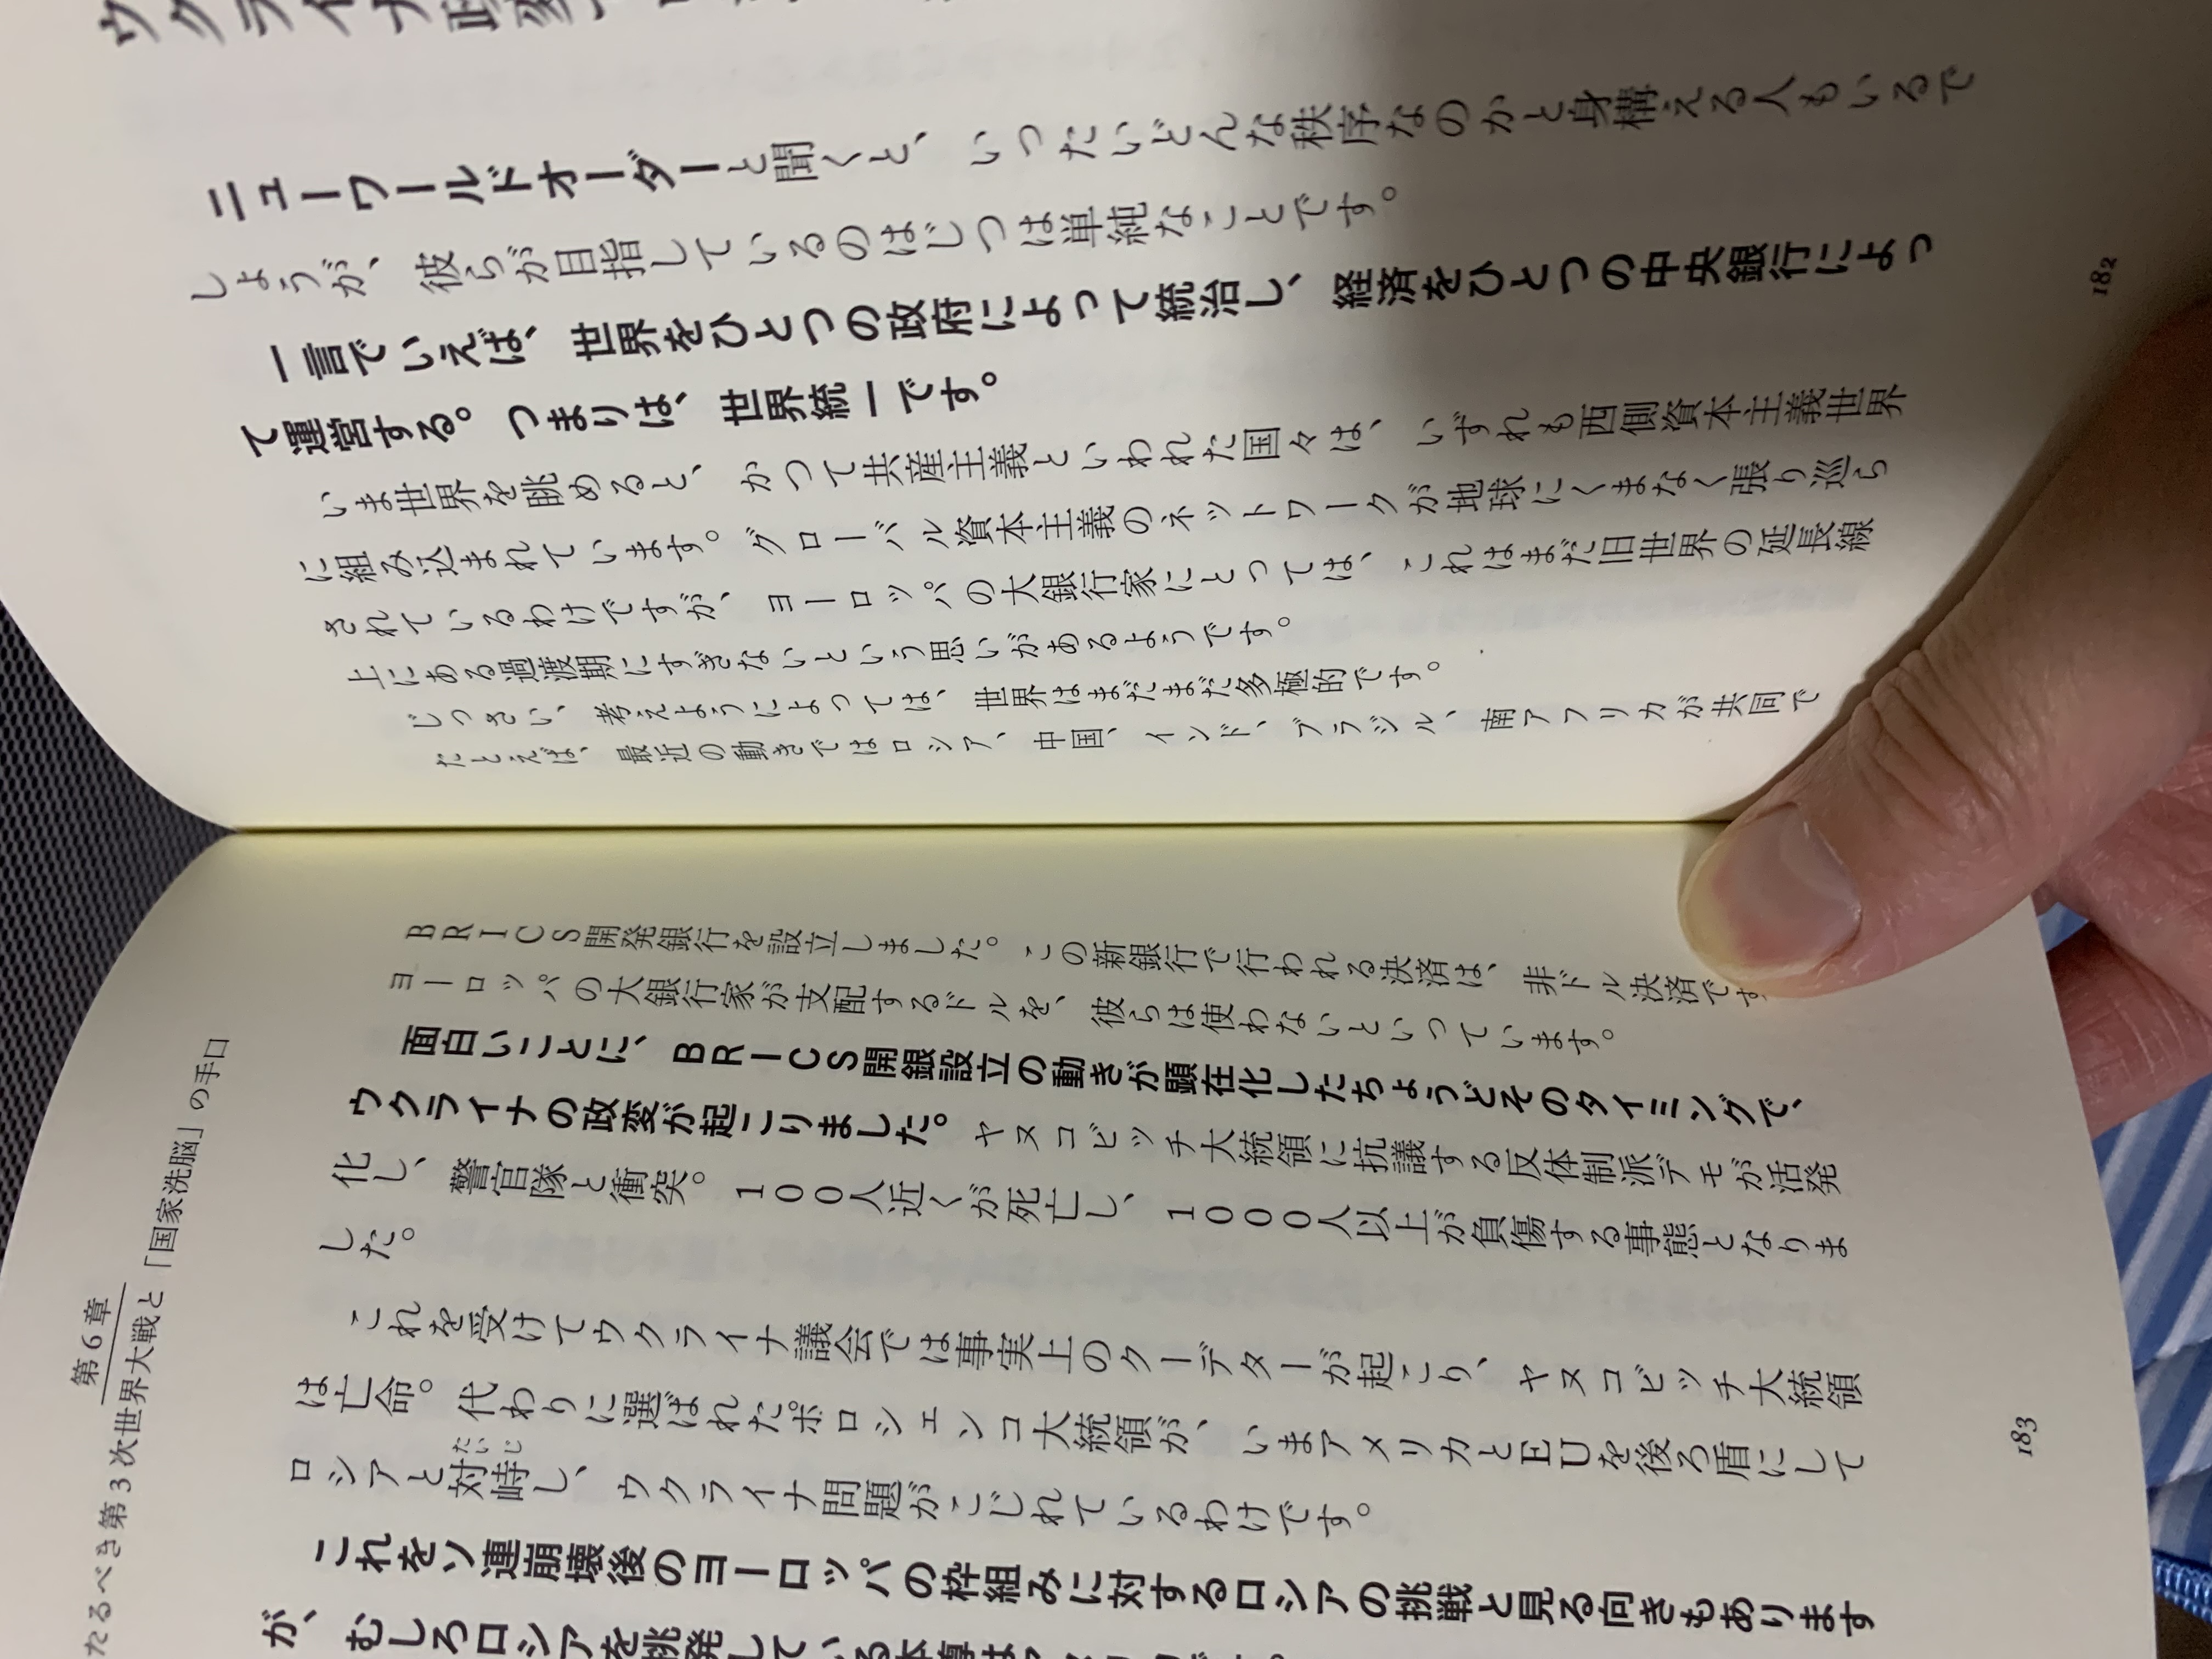 ウクライナ政変
ニューワールドオーダーと聞くと、いったいどんな秩序なのかと身構える人もいるで
しょうが、彼らが目指しているのはじつは単純なことです。
一言でいえば、世界をひとつの政府によって統治し、経済をひとつの中央銀行によっ
て運営する。つまりは、世界統一です。
いま世界を眺めると、かつて共産主義といわれた国々は、いずれも西側資本主義世界
に組み込まれています。グローバル資本主義のネットワークが地球にくまなく張り巡ら
されているわけですが、ヨーロッパの大銀行家にとっては、これはまだ旧世界の延長線
上にある過渡期にすぎないという思いがあるようです。
じっさい、考えようによっては、世界はまだまだ多極的です。
たとえば、最近の動きではロシア、中国、インド、ブラジル、南アフリカが共同で
182
BRICS開発銀行を設立しました。この新銀行で行われる決済は、非ドル決済です
ヨーロッパの大銀行家が支配するドルを、彼らは使わないといっています。
面白いことに、BRICS開銀設立の動きが顕在化したちょうどそのタイミングで、
ウクライナの政変が起こりました。ヤヌコビッチ大統領に抗議する反体制派デモが活発
化し、警官隊と衝突。100人近くが死亡し、1000人以上が負傷する事態となりま
した。
これを受けてウクライナ議会では事実上のクーデターが起こり、ヤヌコビッチ大統領
は亡命。代わりに選ばれたポロシェンコ大統領が、いまアメリカとEUを後ろ盾にして
ロシアと対峙し、ウクライナ問題がこじれているわけです。
たいじ
これをソ連崩壊後のヨーロッパの枠組みに対するロシアの挑戦と見る向きもあります
が、むしろロシアを挑発している
第6章
たるべき第3次世界大戦と「国家洗脳」の手口
183